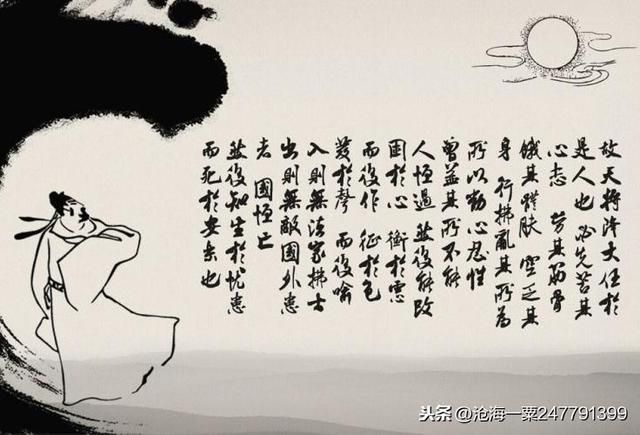 故天将降大任於
是人也 必先苦其
心志 劳其筋骨
餓其體肤 空乏其
身 行拂亂其所為
所以動心忍性
曾益其所不能
人恒過 然後能改
困於心 衡於慮
而後作 征於色
發於聲 而後喻
入則無法家拂士
出則無敵國外患
者 國恒亡
然後知生於忧患
而死於安樂也
头条 @沧海一粟247791399